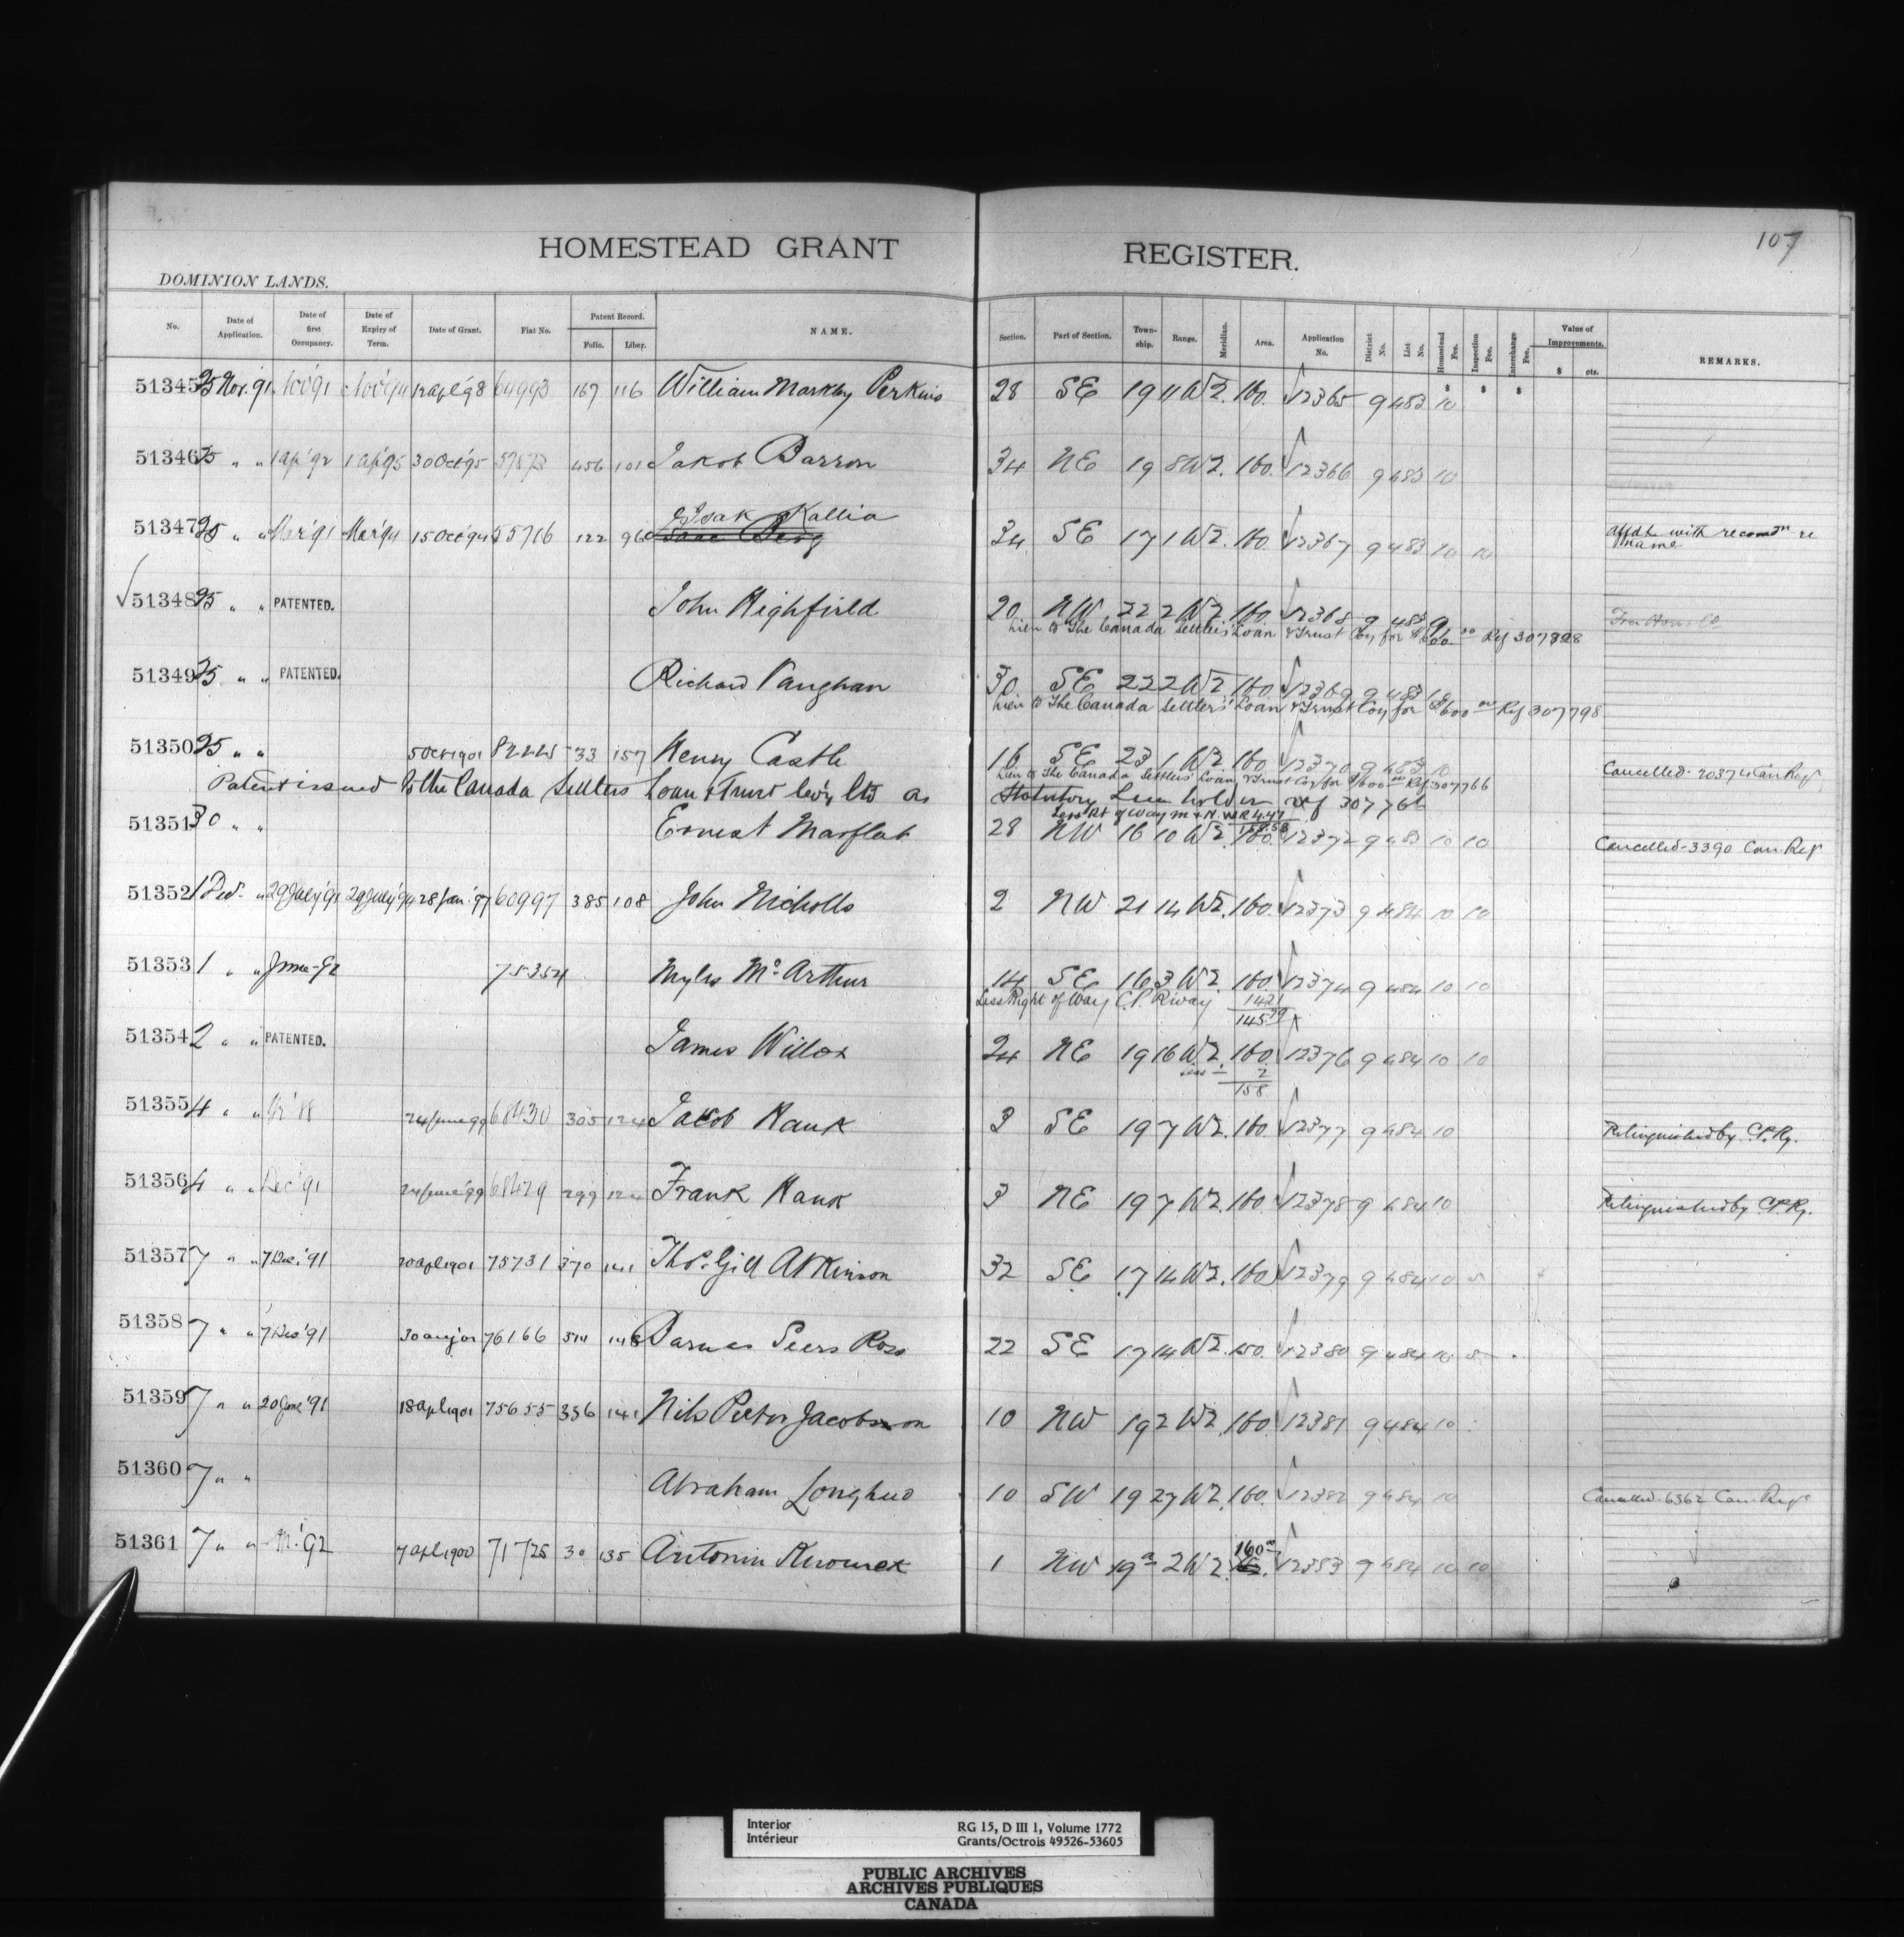 107
HOMESTEAD GRANT REGISTER.
DOMINION LANDS.
No. Date of Application. Date of first Occupancy. Date of Expiry of Term. Date of Grant. Fiat No. Patent Record. Folio. Liber. NAME. Section. Part of Section. Town-ship. Range. Meridian. Area. Application No. District No. List No. Homestead Fee. Inspection Fee. Interchange Fee. Value of Improvements. $ cts. REMARKS.
$ $ $
51345 25 Nov. 91 Nov '91 Nov '94 12 Apl '98 64993 167 116 William Markby Perkins 28 SE 19 11 W2. 160. 12365 9 483 10
51346 25 " " 1 Ap '92 1 Ap '95 30 Oct '95 57573 456 101 Jakob Barron 34 NE 19 8 W2. 160. 12366 9 483 10
Isak Kallio
51347 25 " " Mar '91 Mar '94 15 Oct '94 55716 122 96 Isaac Berg 34 SE 17 1 W2. 160. 12367 9 483 10 10 affdt with recomdn re name
51348 25 " " PATENTED. John Highfield 20 NW 22 2 W2. 160. 12368 9 483
Lien to The Canada Settlers' Loan & Trust Coy for $600.00 Ref 307828
51349 25 " " PATENTED. Richard Vaughan 30 SE 22 2 W2. 160. 12369 9 483 10
Lien to The Canada Settlers' Loan & Trust Coy for $600.00 Ref 307798
51350 25 " " 5 Oct 1901 82225 33 157 Henry Castle 16 SE 23 1 W2. 160. 12370 9 483 10 Cancelled. 20374 Can Regr
Lien to The Canada Settlers' Loan & Trust Coy for $600.00 Ref 307766
Patent issued to the Canada Settlers Loan & Trust Co'y Ltd as Statutory Lien holder ref 307766
Less Rt of Way M & N. W R 4.47
51351 30 " " Ernest Marflat 28 NW 16 10 W2. 160. 12372 9 483 10 10 Cancelled - 3390 Can. Regr
51352 1 Dec. " 29 July '91 29 July '94 28 Jan. '97 60997 385 108 John Nicholls 2 NW 21 14 W2. 160. 12373 9 484 10 10
51353 1 " " June - 92 75354 Myles McArthur 14 SE 16 3 W2. 160. 12374 9 484 10 10
Less Right of Way C.P. R'way 14.21
145.79
51354 2 " " PATENTED. James Willox 24 NE 19 16 W2. 160. 12376 9 484 10 10
Less - 2
158
51355 4 " " 24 June 99 68430 305 124 Jacob Hauk 3 SE 19 7 W2. 160. 12377 9 484 10 Relinquished by C.P. Ry.
51356 4 " " Dec '91 24 June '99 68429 299 124 Frank Hauk 3 NE 19 7 W2. 160. 12378 9 484 10 Relinquished by C.P. Ry.
51357 7 " " 7 Dec. '91 20 Apl 1901 75731 370 141 Thos. Gill Atkinson 32 SE 17 14 W2. 160. 12379 9 484 10 5
51358 7 " " 7 Dec '91 30 Aug 01 76166 314 Barnes Peers Ross 22 SE 17 14 W2. 150. 12380 9 484 10 5
51359 7 " " 20 June '91 18 Apl 1901 75655 336 141 Nils Peter Jacobsson 10 NW 19 2 W2. 160. 12381 9 484 10
51360 7 " " Abraham 10 SW 19 27 W2. 160. 12382 9 484 10 Cancelled. 6362 Can. Regr
51361 7 " " '92 7 Apl 1900 71725 30 135 Antonin 1 NW 19a 2 W2. 160.00 12383 9 484 10 10
Interior
Intérieur
RG 15, D III 1, Volume 1772
Grants/Octrois 49526-53605
PUBLIC ARCHIVES
ARCHIVES PUBLIQUES
CANADA